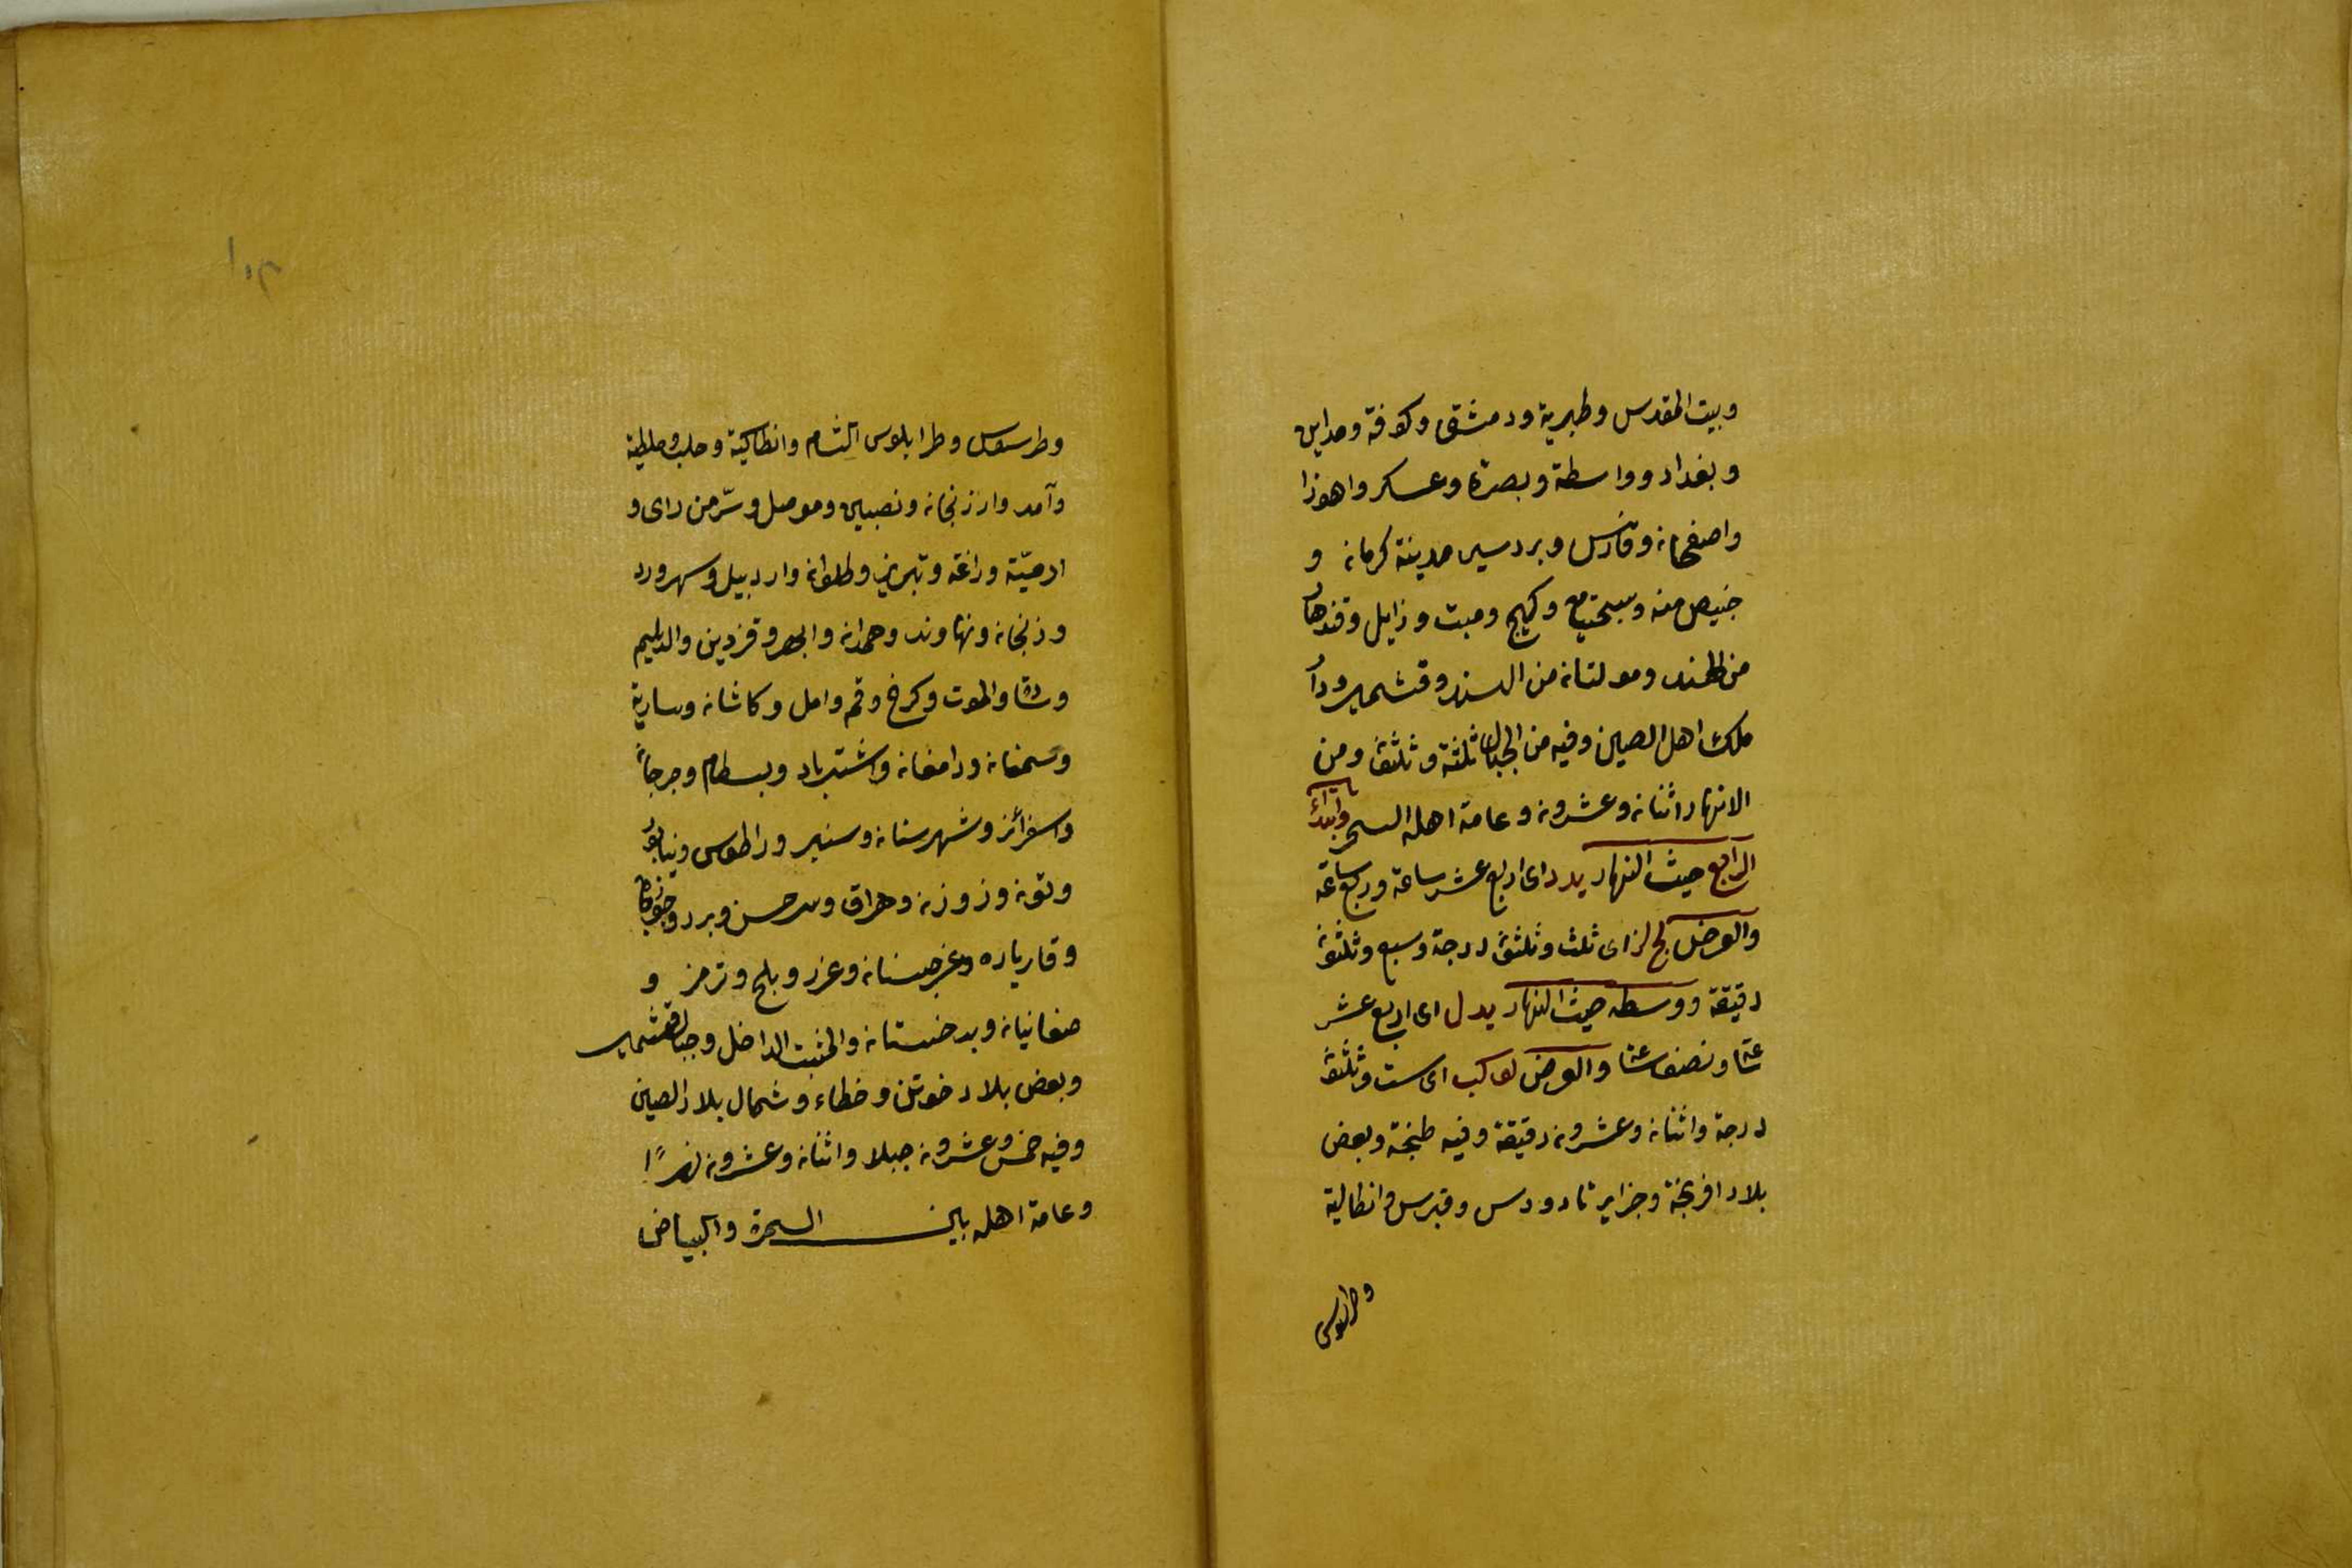 وبيت المقدس وطبرية ودمشق وكوفة ومداين
وبغداد وواسطة وبصرة وعسكر واهوزا
واصفهانه وفارس وبردسير مدينة كرمانه و
خبيص منه وكيج ومبت وزابل وقندهار
من الهند ومولتانه من السند وقشمير ودار
ملك اهل الصين وفيه من الجبال ثلثة وثلثون ومن
الانهار اثنانه وعشرونه وعامة اهله السمر وابتداء
الرابع حيث النهار يد د اى اربع عشر ساعة وربع ساعة
والعرض لج لز اى ثلث وثلثون درجة وسبع وثلثون
دقيقة ووسطه حيث النهار يد ل اى اربع عشر
ساعة ونصف ساعة والعرض لو كب اى ست وثلثون
درجة واثنانه وعشرونه دقيقة وفيه طنجة وبعض
بلاد افرنجة وجزاير نادودس وقبرس وانطالية
وطرسوس
وطرسوس وطرابلوس الشام وانطاكية وحلب وملطية
وآمد وارزنجانه ونصيبين وموصل وسرّ من راى و
ارميّة وراغة وتبريز وطلوانه واردبيل وسهرورد
وزنجانه ونهاوند وهمدانه وابهر وقزدين والديليم
والموت وكرخ وقم وامل وكاشانه وسارية
وسمنانه ودامغانه واشترباد وبسطام وجرجان
واسفرائز وشهرستانه وسنير وراطوس ونيابور
وتونه وزوزنه وهراق وسرحسن وبرد
وقارياده وغرجستانه وعزر وبلخ وترمز و
صغانيانه وبدخستانه والختبت الداخل وجبال قشمير
وبعض بلاد خوتن وخطاء وشمال بلاد الصين
وفيه خمس وعشرونه جبلا واثنانه وعشرونه نهرًا
وعامة اهله بين السمرة والبياض